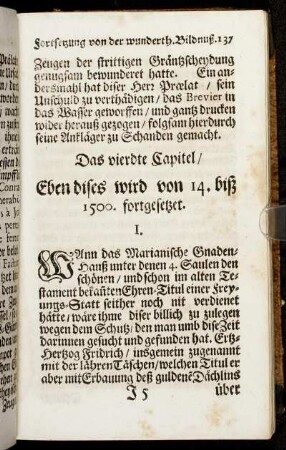 Fortsetzung von der wunderth. Bildnuß. 137
Zeugen der strittigen Gräntzscheydung
genugsam bewunderet hatte. Ein an-
dersmahl hat diser Herr Prælat / sein
Unschuld zu verthädigen / das Brevier in
das Wasser geworffen / und gantz drucken
wider herauß gezogen / folgsam hierdurch
seine Ankläger zu Schanden gemacht.
Das vierdte Capitel /
Eben dises wird von 14. biß
1500. fortgesetzet.
I.
WAnn das Marianische Gnaden-
Hauß unter denen 4. Saulen den
schönen / und schon im alten Te-
stament bekañten Ehren-Titul einer Frey-
ungs-Statt seither noch nit verdienet
hätte / wäre ihme diser billich zu zulegen
wegen dem Schutz / den man umb dise Zeit
darinnen gesucht und gefunden hat. Ertz-
Hertzog Fridrich / insgemein zugenannt
mit der lähren Täschen / welchen Titul er
aber mit Erbauung deß guldenē Dächlins
J 5 über